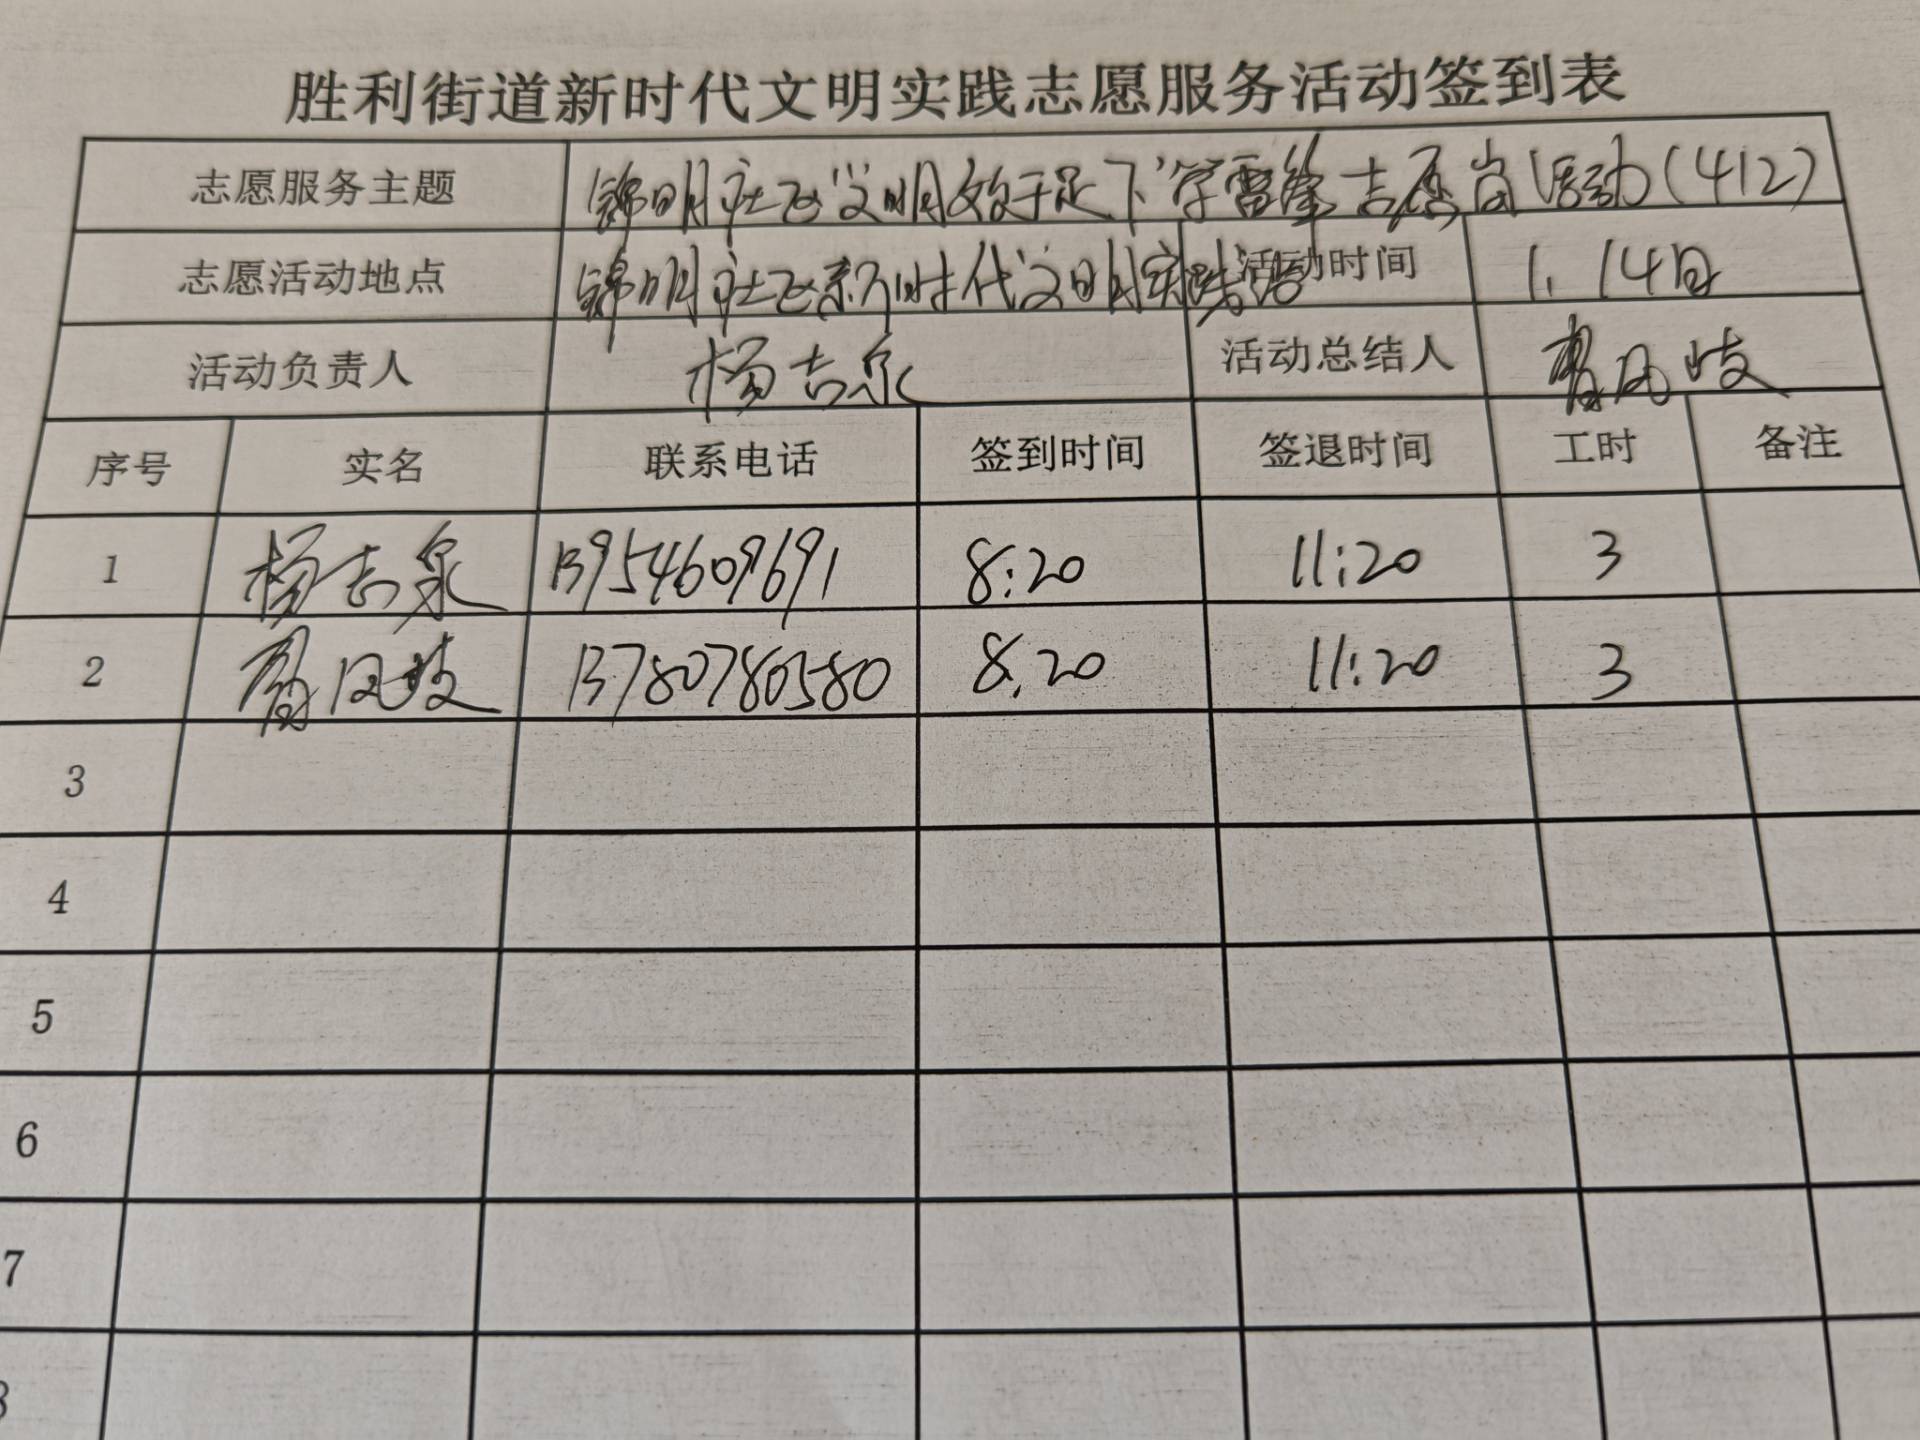 胜利街道新时代文明实践志愿服务活动签到表
志愿服务主题 锦明社区“文明始于足下”学雷锋志愿岗活动(412)
志愿活动地点 锦明社区新时代文明实践站 活动时间 1.14日
活动负责人 杨志泉 活动总结人 凤岐
序号 实名 联系电话 签到时间 签退时间 工时 备注
1 杨志泉 13954609691 8:20 11:20 3
2 凤岐 13780780580 8.20 11:20 3
3
4
5
6
7
8